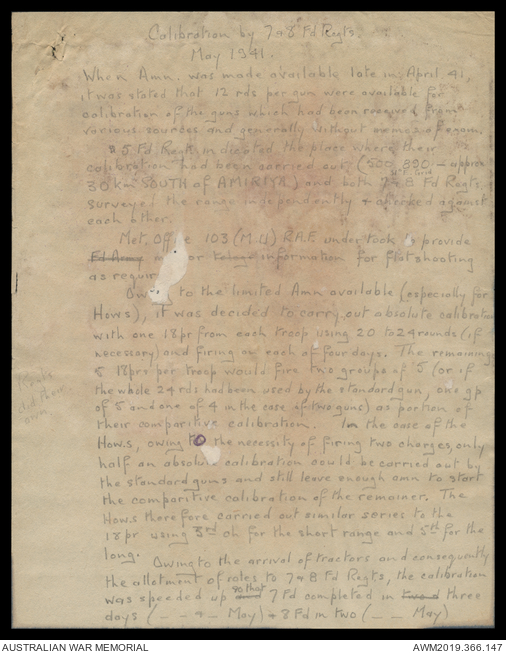 Calibration by 7 & 8 Fd Regts.
May 1941.
When Amn. was made available late in April 41,
it was stated that 12 rds per gun were available for
calibration of the guns which had been received from
various sources and generally without memos of exam.
5 Fd Regt indicated the place where their
calibration had been carried out, (500 890 — approx
30 km SOUTH of AMIRIYA) and both 7 & 8 Fd Regts
surveyed the range independently & checked against
each other.
Met. Office 103 (M.U) R.A.F. undertook to provide
Fd Army or information for flat shooting
as requir
Owing to the limited Amn available (especially for
Hows), it was decided to carry out absolute calibration
with one 18pr from each troop using 20 to 24 rounds (if
necessary) and firing on each of four days. The remaining
5 18prs per troop would fire two groups of 5 (or if
the whole 24 rds had been used by the standard gun, one gp
of 5 and one of 4 in the case of two guns) as portion of
their comparitive calibration. In the case of the
Hows, owing to the necessity of firing two charges, only
half an absolute calibration could be carried out by
the standard guns and still leave enough amn to start
the comparitive calibration of the remainer. The
Hows therefore carried out similar series to the
18pr using 3rd ch for the short range and 5th for the
long.
Owing to the arrival of tractors and consequently
the allotment of roles to 7 & 8 Fd Regts, the calibration
was speeded up so that 7 Fd completed in three
days ( _ _ & _ May) & 8 Fd in two ( _ _ May)
Regts
did their
own
AUSTRALIAN WAR MEMORIAL
AWM2019.366.147